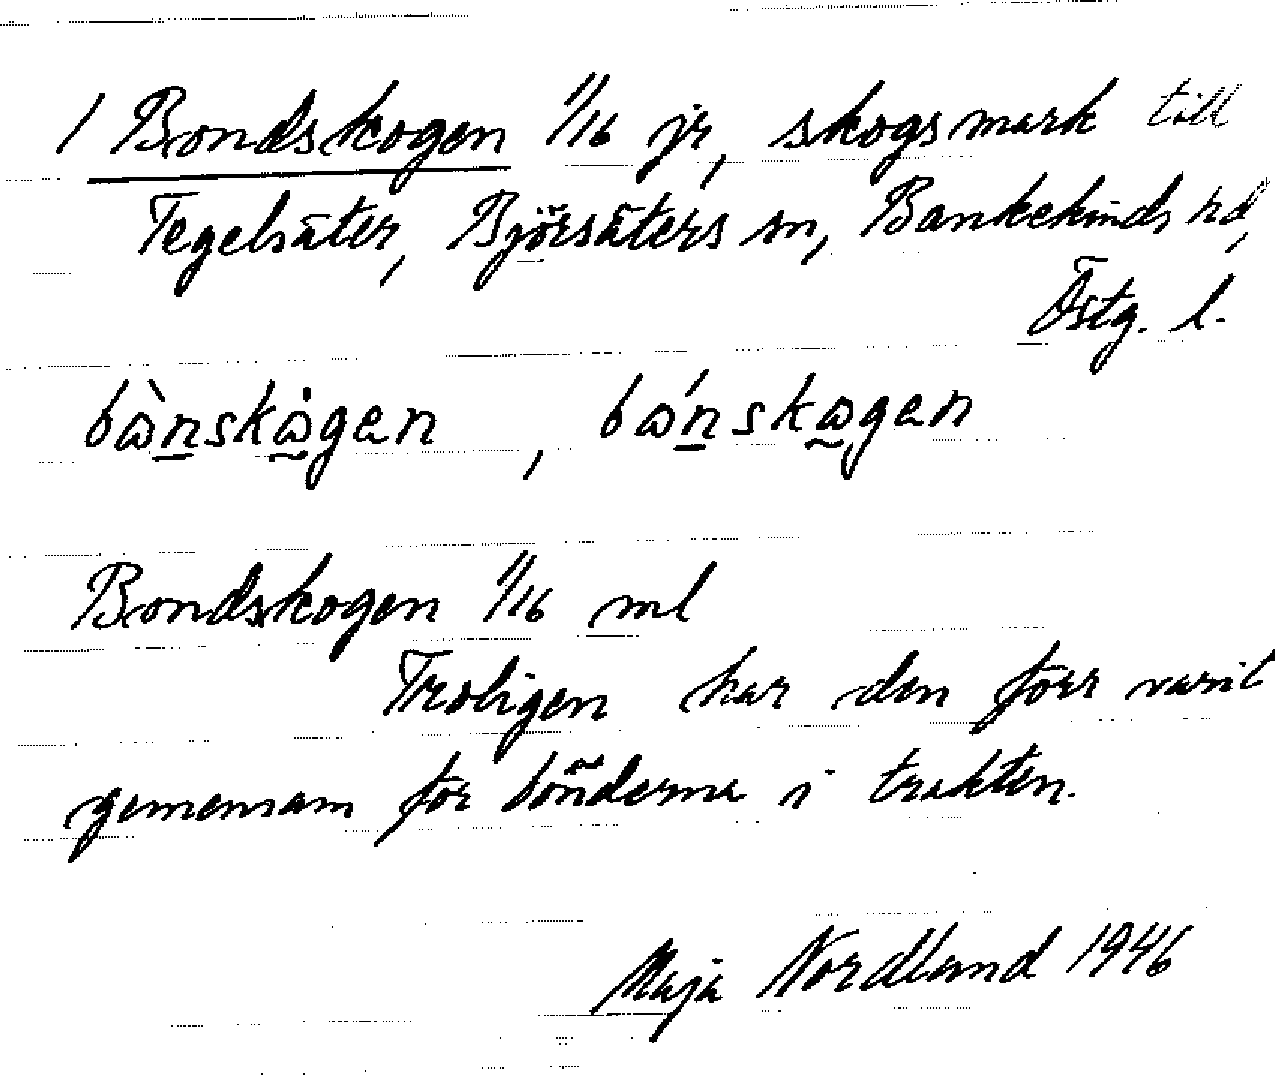 1 Bondskogen 1/16 jr, skogsmark till
Tegelsäter, Björsäters sn, Bankekinds hd,
Östg. l.
bɷ̀nskɷ̇gen, bɷ́nskɷgen
Bondskogen 1/16 ml
Troligen har den förr varit
gemensam för bönderna i trakten.
Maja Nordland 1946